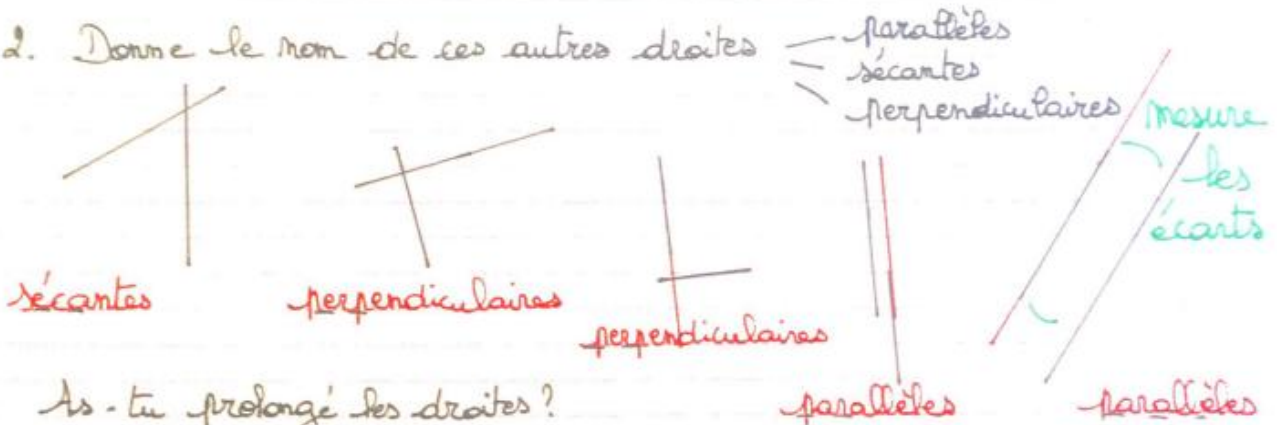 2. Donne le nom de ces autres droites
parallèles
sécantes
perpendiculaires
mesure
les
écarts
sécantes
perpendiculaires
perpendiculaires
parallèles
parallèles
As-tu prolongé les droites ?